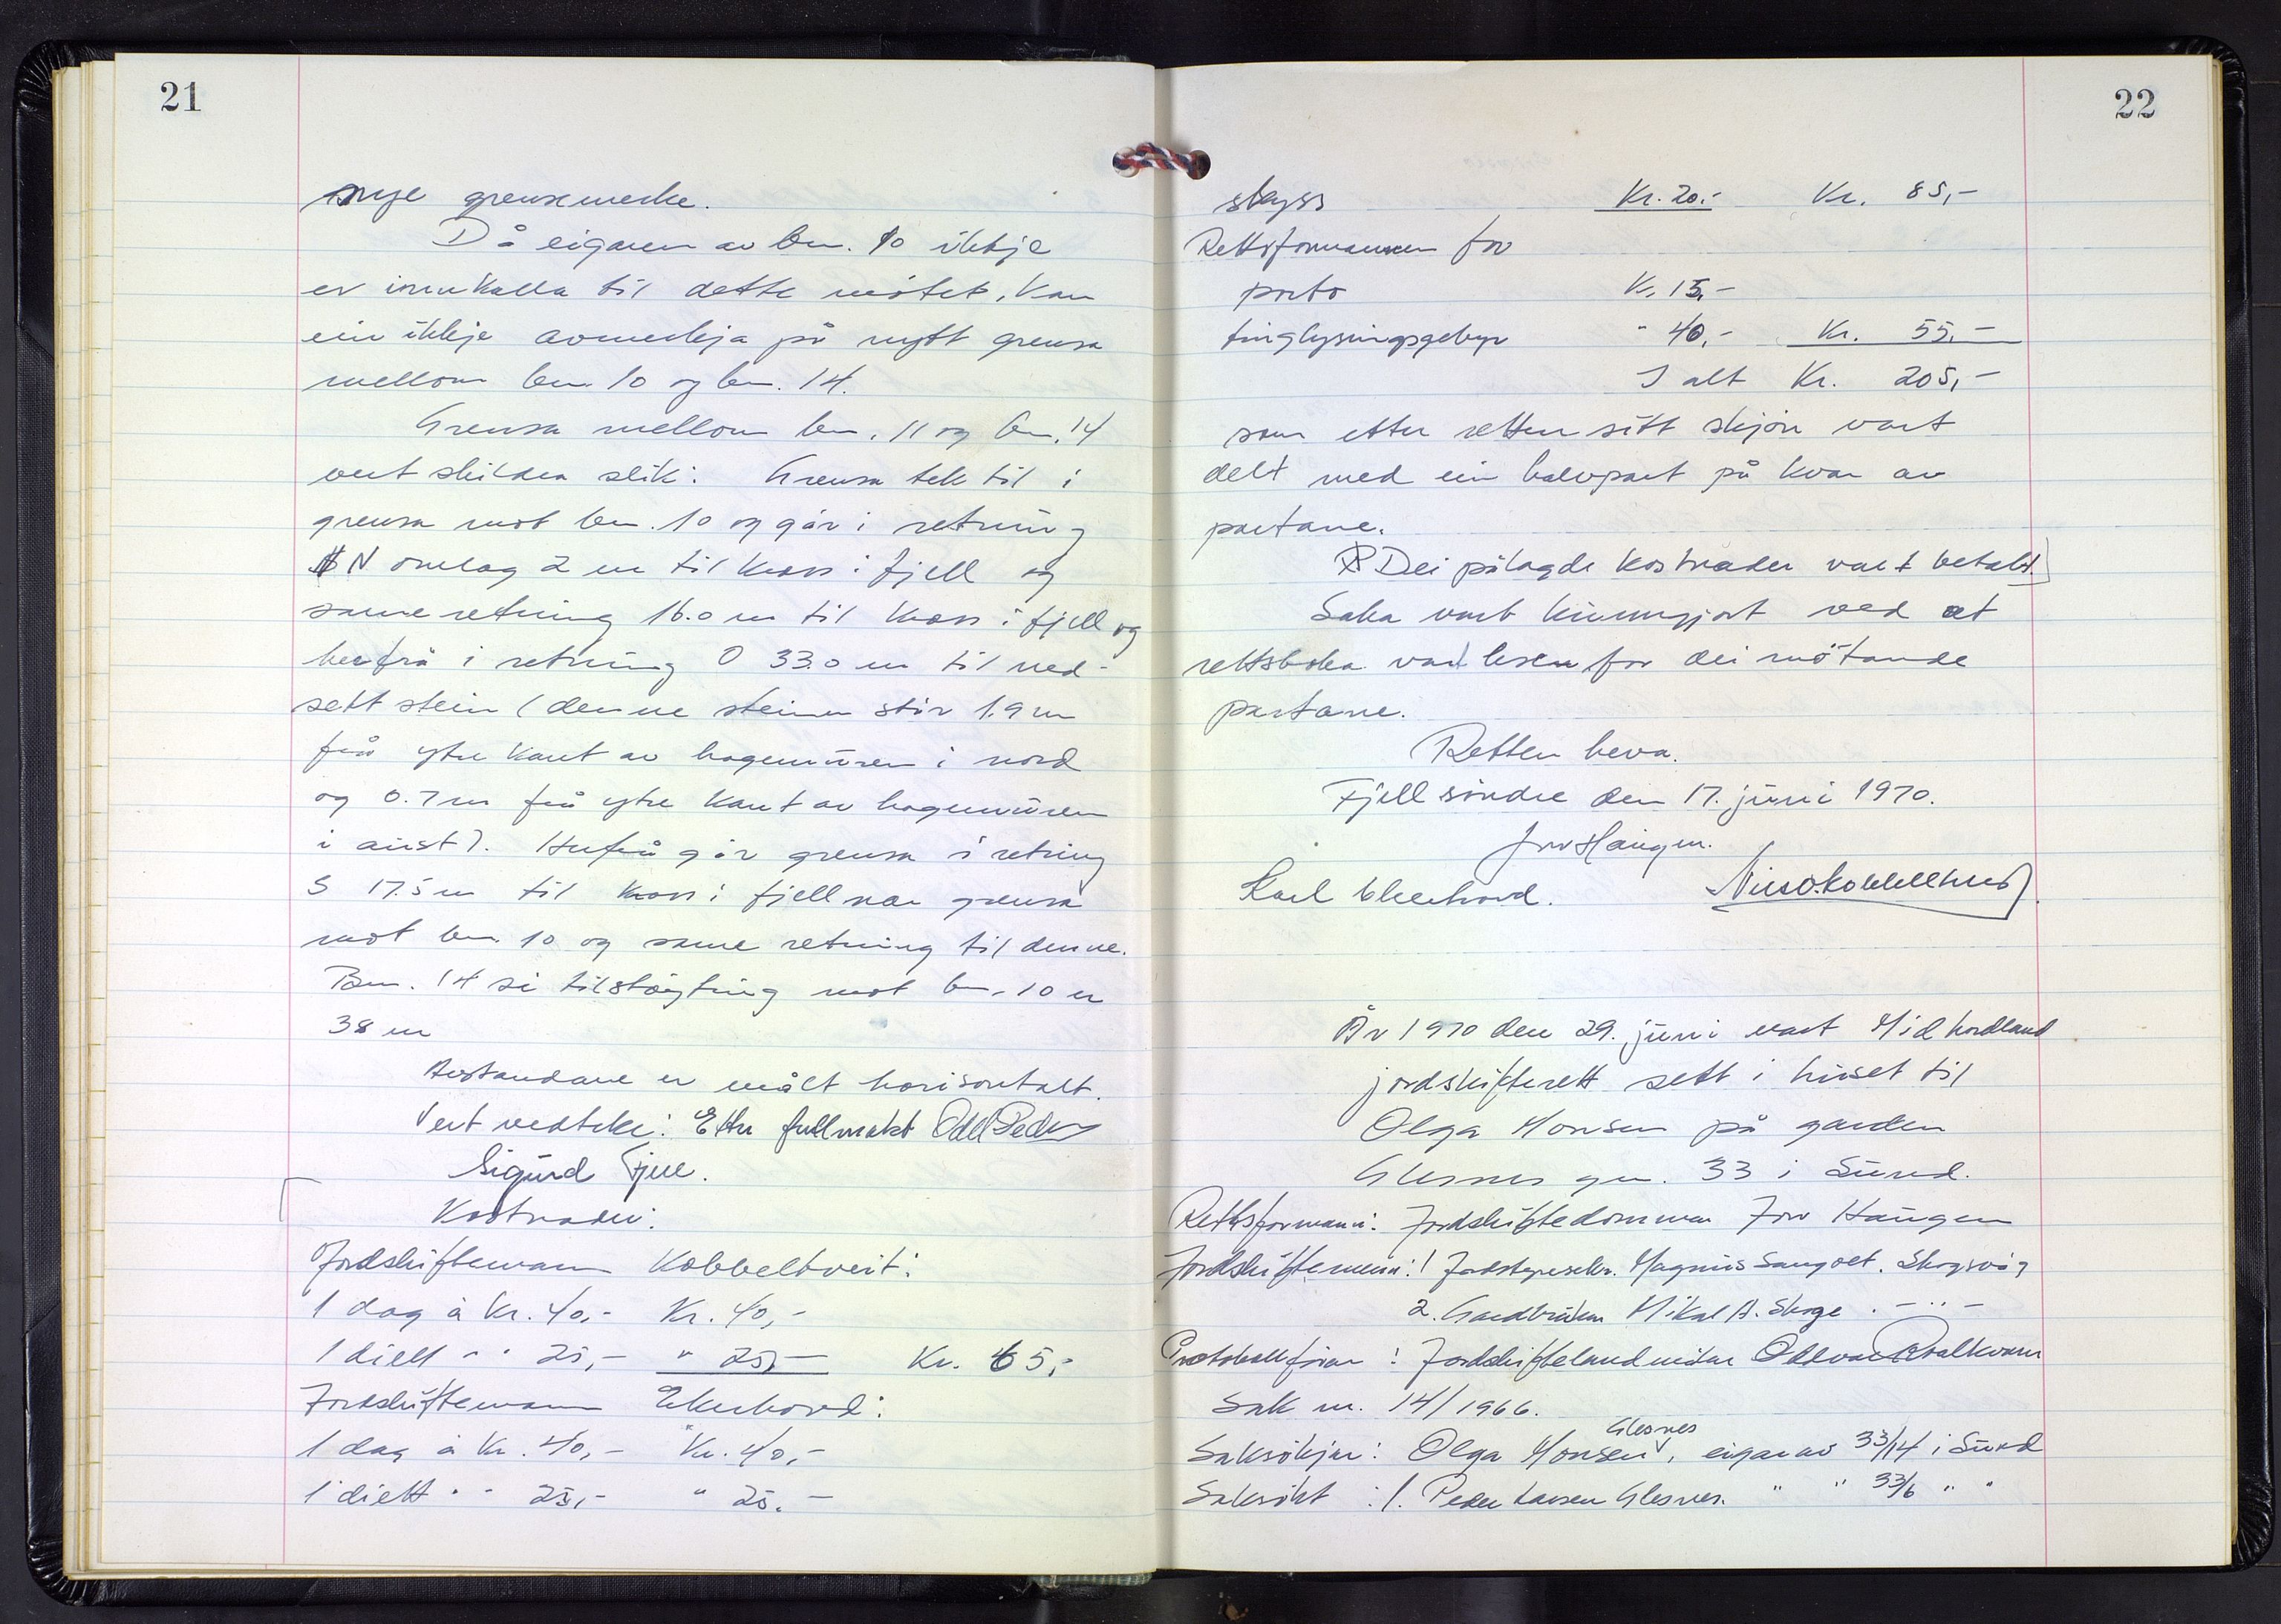 21
nye grensemerke.
Då eigaren av bnr. 10 ikkje
er innkalla til dette møtet, kan
ein ikkje avmerkja på nytt grensa
mellom bnr. 10 og bnr. 14.
Grensa mellom bnr. 11 og bnr. 14
vert skildra slik: Grensa tek til i
grensa mot bnr. 10 og går i retning
N omlag 2 m til kross i fjell og
same retning 16.0 m til kross i fjell og
herfrå i retning O 33.0 m til ned-
sett stein (denne steinen står 1.9 m
frå ytre kant av hagemuren i nord
og 0.7 m frå ytre kant av hagemuren
i aust). Herfrå går grensa i retning
S 17.5 m til kross i fjell nær grensa
mot bnr. 10 og same retning til denne.
Bnr. 14 si tilstøyting mot bnr. 10 er
38 m
Avstandane er målt horisontalt.
Vert vedteke: Etter fullmakt Odd Peder
Sigurd Fjell.
Kostnader:
Jordskiftemann Kobbeltveit:
1 dag à kr. 40,- Kr. 40,-
1 diett " " 25,- " 25,- Kr. 65,-
Jordskiftemann Ekerhovd:
1 dag à kr. 40,- Kr. 40,-
1 diett " " 25,- " 25.-
22
skyss Kr. 20.- Kr. 85,-
Rettsformannen for
porto Kr. 15,-
tinglysingsgebyr " 40,- Kr. 55,-
I alt Kr. 205,-
som etter retten sitt skjøn vart
delt med ein halvpart på kvar av
partane.
Dei pålagde kostnader vart betalt.
Saka vart kunngjort ved at
rettsboka vart lesen for dei møtande
partane.
Retten heva.
Fjell søndre den 17. juni 1970.
Jon Haugen.
Karl Ekerhovd. Nils O. Kobbeltveit
År 1970 den 29. juni vart Midhordland
jordskifterett sett i huset til
Olga Monsen på garden
Glesnes gnr. 33 i Sund.
Rettsformann: Jordskiftedommar Jon Haugen
Jordskiftemenn: 1 Jordstyresekr. Magnus Sangolt. Skogsvåg
2. Gardbrukar Mikal A. Skoge . - " -
Protokollførar: Jordskiftelandmålar Oddvar Kvalkvam
Sak nr. 14/1966.
Saksøkjar: Olga Monsen Glesnes, eigar av 33/14 i Sund
Saksøkt: 1. Peder Larsen Glesnes. " " 33/6 " "